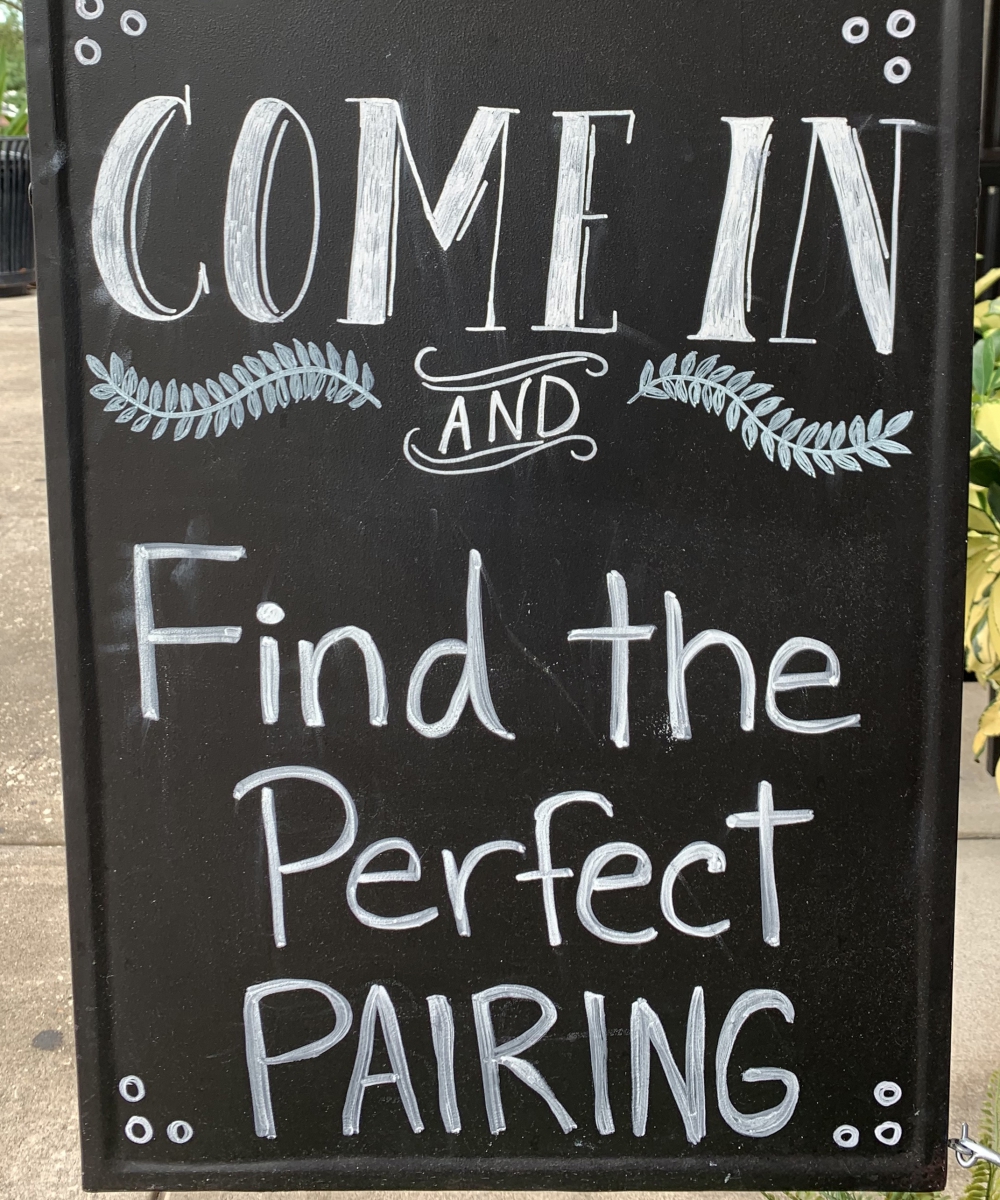 COME IN
AND
Find the
Perfect
PAIRING